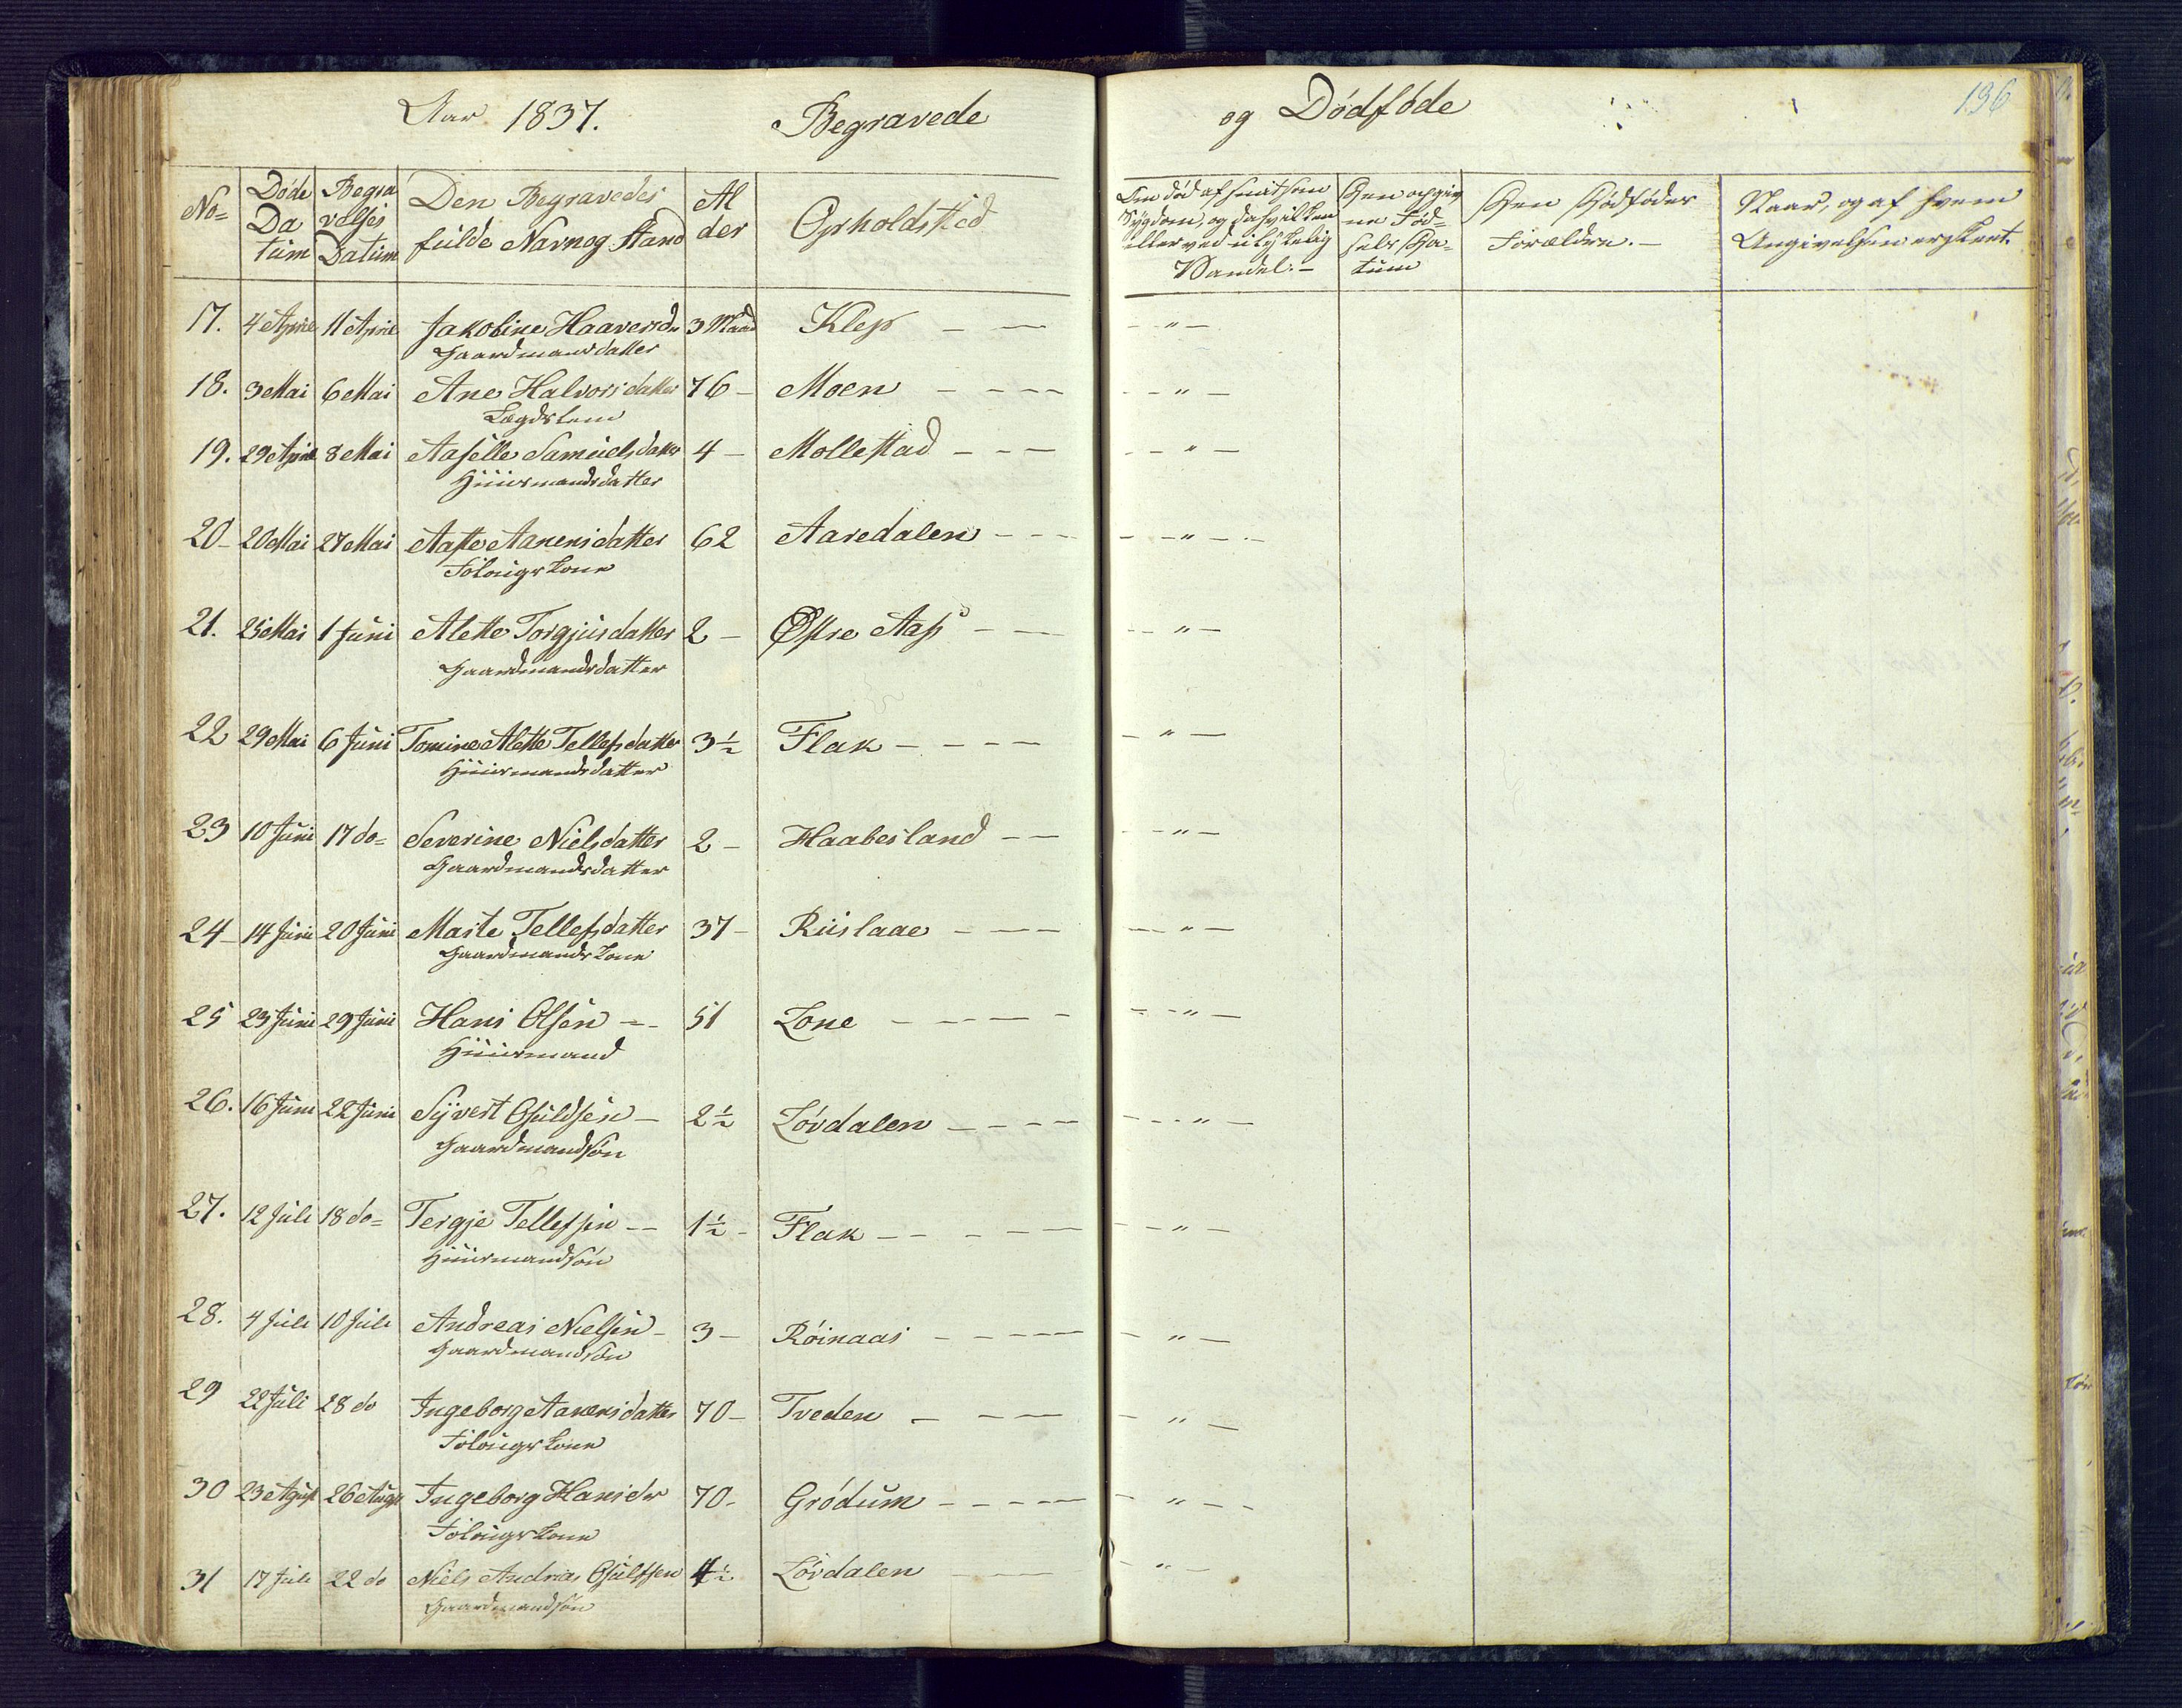 Aar 1837. Begravede
og Dødføde 136
No= Døde Datum Begravelses Datum Den Begravedes fulde Navn og Stand Alder Opholdsted
Om død af smitsom Sygdom, og da hvilken eller ved ulykkelig Handel:- Den opgivne Fødsels Datum Den Dødfødes Forældre.- Naar, og af hvem Angivelsen er skeet.
17. 4 April 11 April Jakobine Haaversdr 3 Maad Klep — — - " -
Gaardmansdatter
18. 3 Mai 6 Mai Ane Halvorsdatter 76 - Moen - - - - - " -
Lægdslem
19. 29 April 8 Mai Aasille Samuelsdatter 4 - Mollestad - - - - - " -
Huusmandsdatter
20- 20 Mai 27 Mai Aaste Aanensdatter 62 Aaredalen - - - - - " - -
Følougskone
21. 25 Mai 1 Juni Alette Torgjusdatter 2 - Østre Aas - - - - " -
Gaardmandsdatter
22 29 Mai 6 Juni Tomine Alette Tellefsdatter 3½ Flak - - - - - " -
Huusmandsdatter
23 10 Juni 17 do= Severine Nielsdatter 2 - Haabesland - - - - " -
Gaardmandsdatter
24- 14 Juni 20 Juni Marte Tellefsdatter 37 - Riislaae - - - - - " -
Gaardmandskone
25 23 Juni 29 Juni Hans Olsen - - 51 Lone - - - - - - - " -
Huusmand
26. 16 Juni 22 Juni Syvert Osuldsen - 2½ Lövdalen - - - - - - - " -
Gaardmandsøn
27. 12 Juli 18 do= Tergje Tellefsen - - 1½ - Flak - - - - - - - " -
Huusmandsøn
28. 4 Juli 10 Juli Andreas Nielsen - 3 - Röinaas - - - - - - " -
Gaardmandsøn
29 22 Juli 28 do Ingeborg Aanensdatter 70 - Tveden - - - - - " -
Følougskone
30 23 Agust 26 Augst Ingeborg Hansdr 70 - Grödum - - - - - - " - -
Følougskone
31 17 Juli 22 do Niels Andreas Osulfsen 4½ Lövdalen - - - " -
Gaardmandsøn